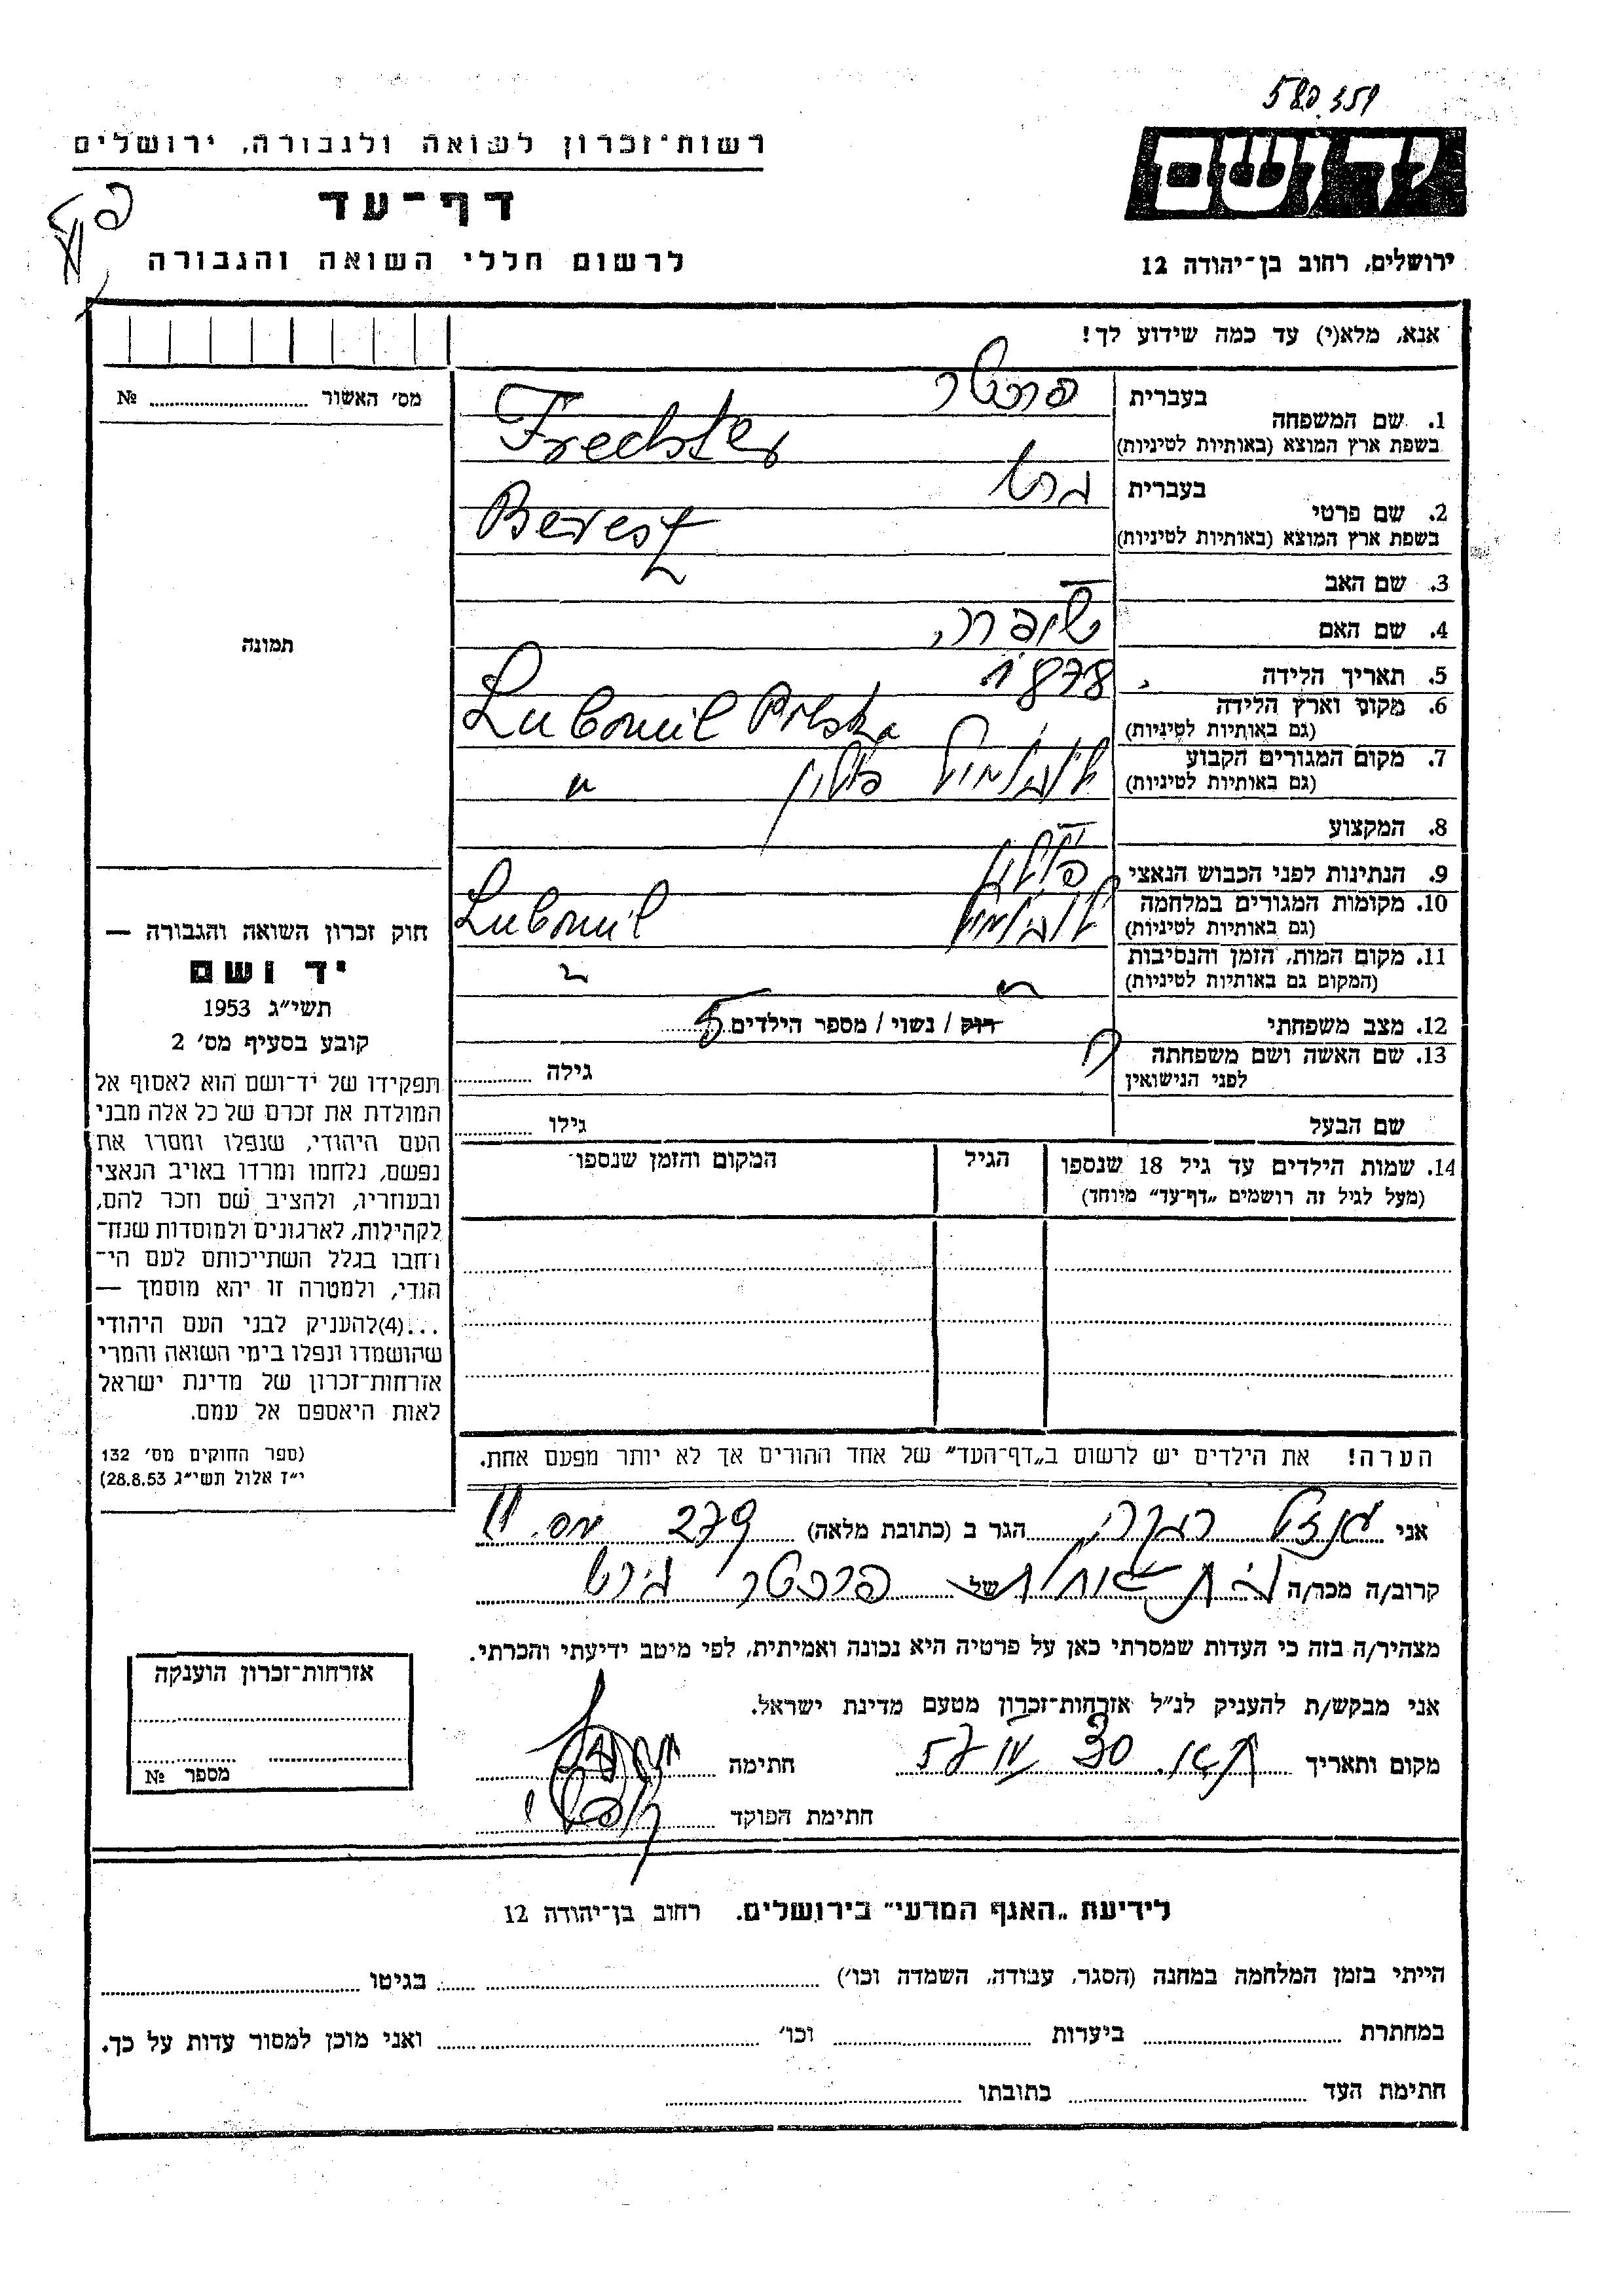 580359
רשות־זכרון לשואה ולגבורה, ירושלים
יד ושם
דף־עד
לרשום חללי השואה והגבורה
ירושלים, רחוב בן־יהודה 12
אנא, מלא(י) עד כמה שידוע לך!
מס׳ האשור № 
תמונה
1. שם המשפחה בעברית פרכטר
בשפת ארץ המוצא (באותיות לטיניות) Frechter
2. שם פרטי בעברית
בשפת ארץ המוצא (באותיות לטיניות)
3. שם האב —
4. שם האם שיפרה
5. תאריך הלידה 1878
6. מקום וארץ הלידה Luboml Polska
(גם באותיות לטיניות)
7. מקום המגורים הקבוע לובומול פולין "
(גם באותיות לטיניות)
8. המקצוע —
9. הנתינות לפני הכבוש הנאצי
10. מקומות המגורים במלחמה לובומול Luboml
(גם באותיות לטיניות)
11. מקום המות, הזמן והנסיבות
(המקום גם באותיות לטיניות)
12. מצב משפחתי רוק / נשוי / מספר הילדים 5
13. שם האשה ושם משפחתה ? גילה
לפני הנישואין
שם הבעל גילו
14. שמות הילדים עד גיל 18 שנספו הגיל המקום והזמן שנספו
(מעל לגיל זה רושמים „דף־עד” מיוחד)
חוק זכרון השואה והגבורה —
יד ושם
תשי״ג 1953
קובע בסעיף מס׳ 2
תפקידו של יד־ושם הוא לאסוף אל
המולדת את זכרם של כל אלה מבני
העם היהודי, שנפלו ומסרו את
נפשם, נלחמו ומרדו באויב הנאצי
ובעוזריו, ולהציב שם וזכר להם,
לקהילות, לארגונים ולמוסדות שנח־
רחבו בגלל השתייכותם לעם הי־
הודי, ולמטרה זו יהא מוסמך —
...(4)להעניק לבני העם היהודי
שהושמדו ונפלו בימי השואה והמרי
אזרחות־זכרון של מדינת ישראל
לאות היאספם אל עמם.
(ספר החוקים מס׳ 132
י״ז אלול תשי״ג 28.8.53)
הערה! את הילדים יש לרשום ב„דף־העד” של אחד ההורים אך לא יותר מפעם אחת.
אני הגר ב (כתובת מלאה) 279
קרוב/ה מכר/ה של פרכטר
מצהיר/ה בזה כי העדות שמסרתי כאן על פרטיה היא נכונה ואמיתית, לפי מיטב ידיעתי והכרתי.
אני מבקש/ת להעניק לנ״ל אזרחות־זכרון מטעם מדינת ישראל.
מקום ותאריך 30 57 חתימה
חתימת הפוקד
אזרחות־זכרון הוענקה
מספר №
לידיעת „האגף המדעי” בירושלים. רחוב בן־יהודה 12
הייתי בזמן המלחמה במחנה (הסגר, עבודה, השמדה וכו׳) בגיטו
במחתרת ביערות וכו׳ ואני מוכן למסור עדות על כך.
חתימת העד כתובתו